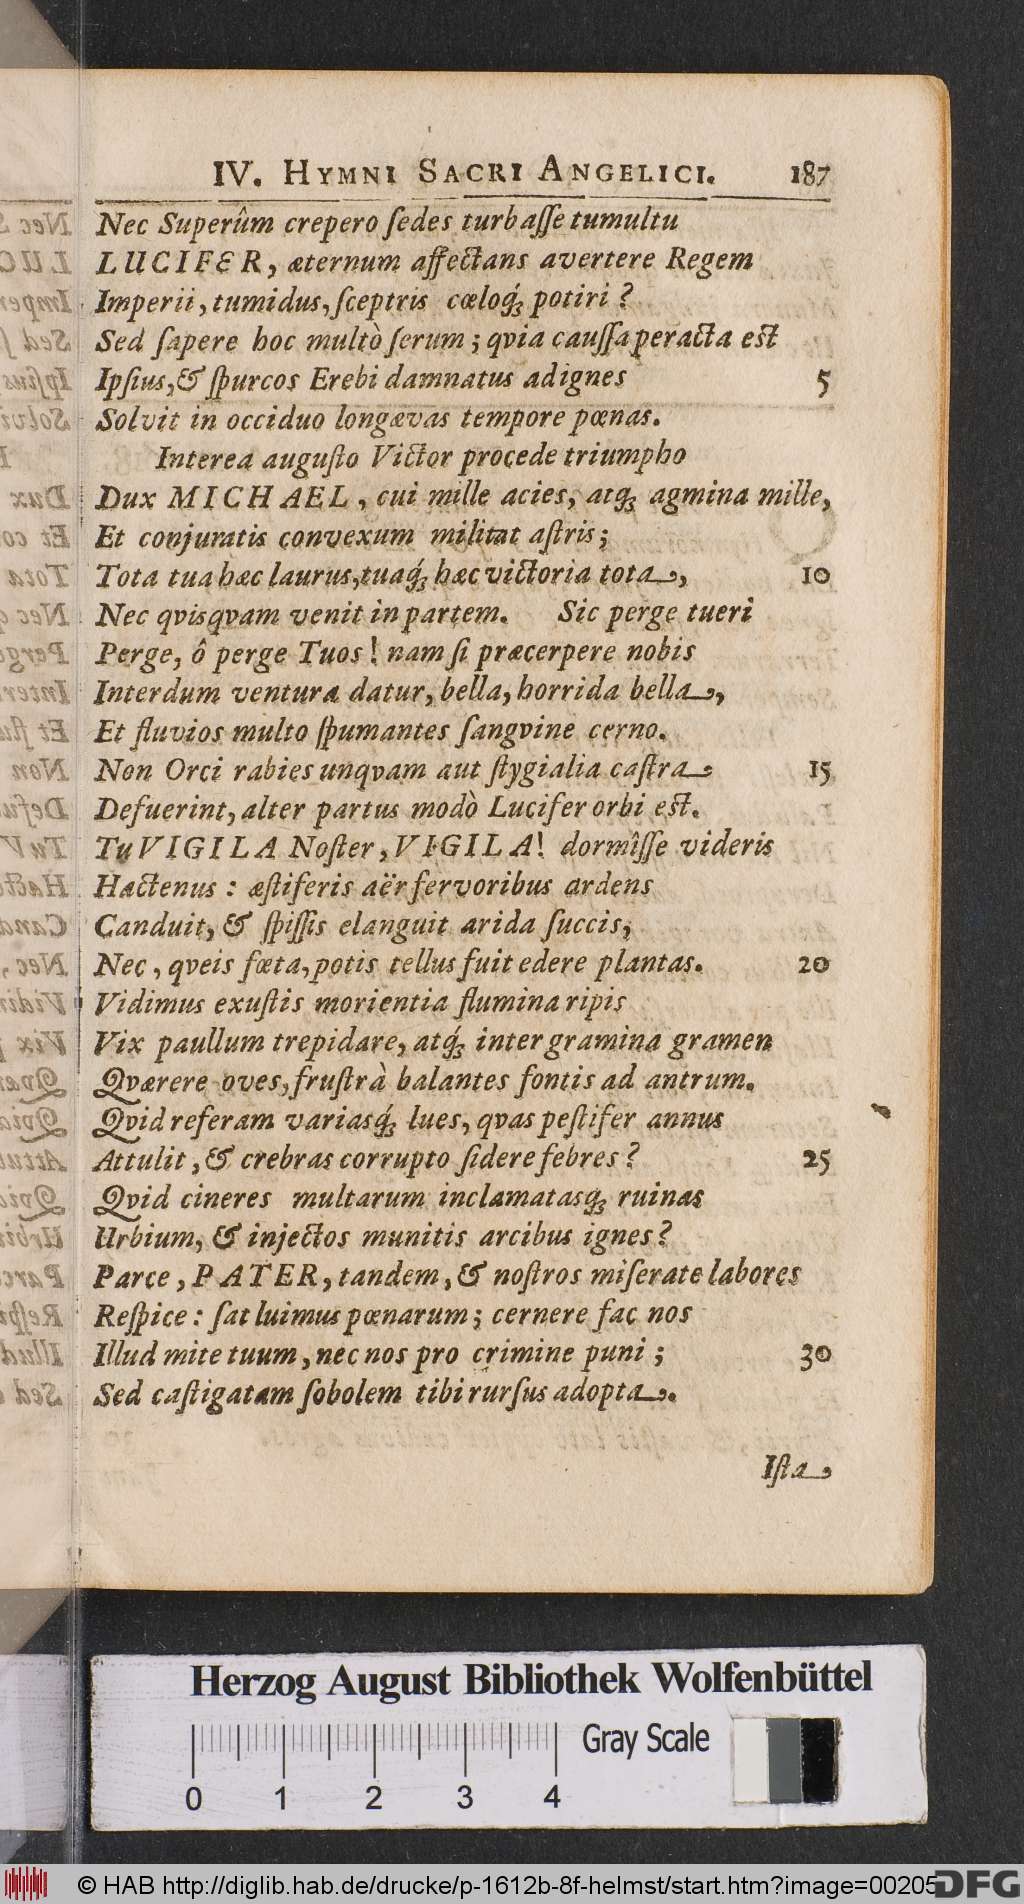 IV. HYMNI SACRI ANGELICI. 187
Nec Superûm crepero ſedes turbaſſe tumultu
LUCIFER, æternum affectans avertere Regem
Imperii, tumidus, ſceptris cœloq́ꝫ potiri?
Sed ſapere hoc multò ſerum; qvia cauſſa peracta est
Ipſius, & ſpurcos Erebi damnatus ad ignes 5
Solvit in occiduo longævas tempore pœnas.
Interea auguſto Victor procede triumpho
Dux MICHAEL, cui mille acies, atqꝫ agmina mille,
Et conjuratis convexum militat aſtris;
Tota tua hæc laurus, tuaq́ꝫ hæc victoria tota, 10
Nec qvisqvam venit in partem. Sic perge tueri
Perge, ô perge Tuos! nam ſi præcerpere nobis
Interdum ventura datur, bella, horrida bella,
Et fluvios multo ſpumantes ſangvine cerno.
Non Orci rabies unqvam aut ſtygialia caſtra 15
Defuerint, alter partus modò Lucifer orbi est.
Tu VIGILA Noſter, VIGILA! dormîſſe videris
Hactenus: æſtiferis aër fervoribus ardens
Canduit, & ſpiſſis elanguit arida ſuccis,
Nec, qveis fœta, potis tellus fuit edere plantas. 20
Vidimus exuſtis morientia flumina ripis
Vix paullum trepidare, atq́ꝫ inter gramina gramen
Qværere oves, fruſtrà balantes fontis ad antrum.
Qvid referam variasq́ꝫ lues, qvas peſtifer annus
Attulit, & crebras corrupto ſidere febres? 25
Qvid cineres multarum inclamatasq́ꝫ ruinas
Urbium, & injectos munitis arcibus ignes?
Parce, PATER, tandem, & noſtros miſerate labores
Reſpice: ſat luimus pœnarum; cernere fac nos
Illud mite tuum, nec nos pro crimine puni; 30
Sed caſtigatam ſobolem tibi rurſus adopta.
Iſta
Herzog August Bibliothek Wolfenbüttel
Gray Scale
0 1 2 3 4
© HAB http://diglib.hab.de/drucke/p-1612b-8f-helmst/start.htm?image=00205
DFG